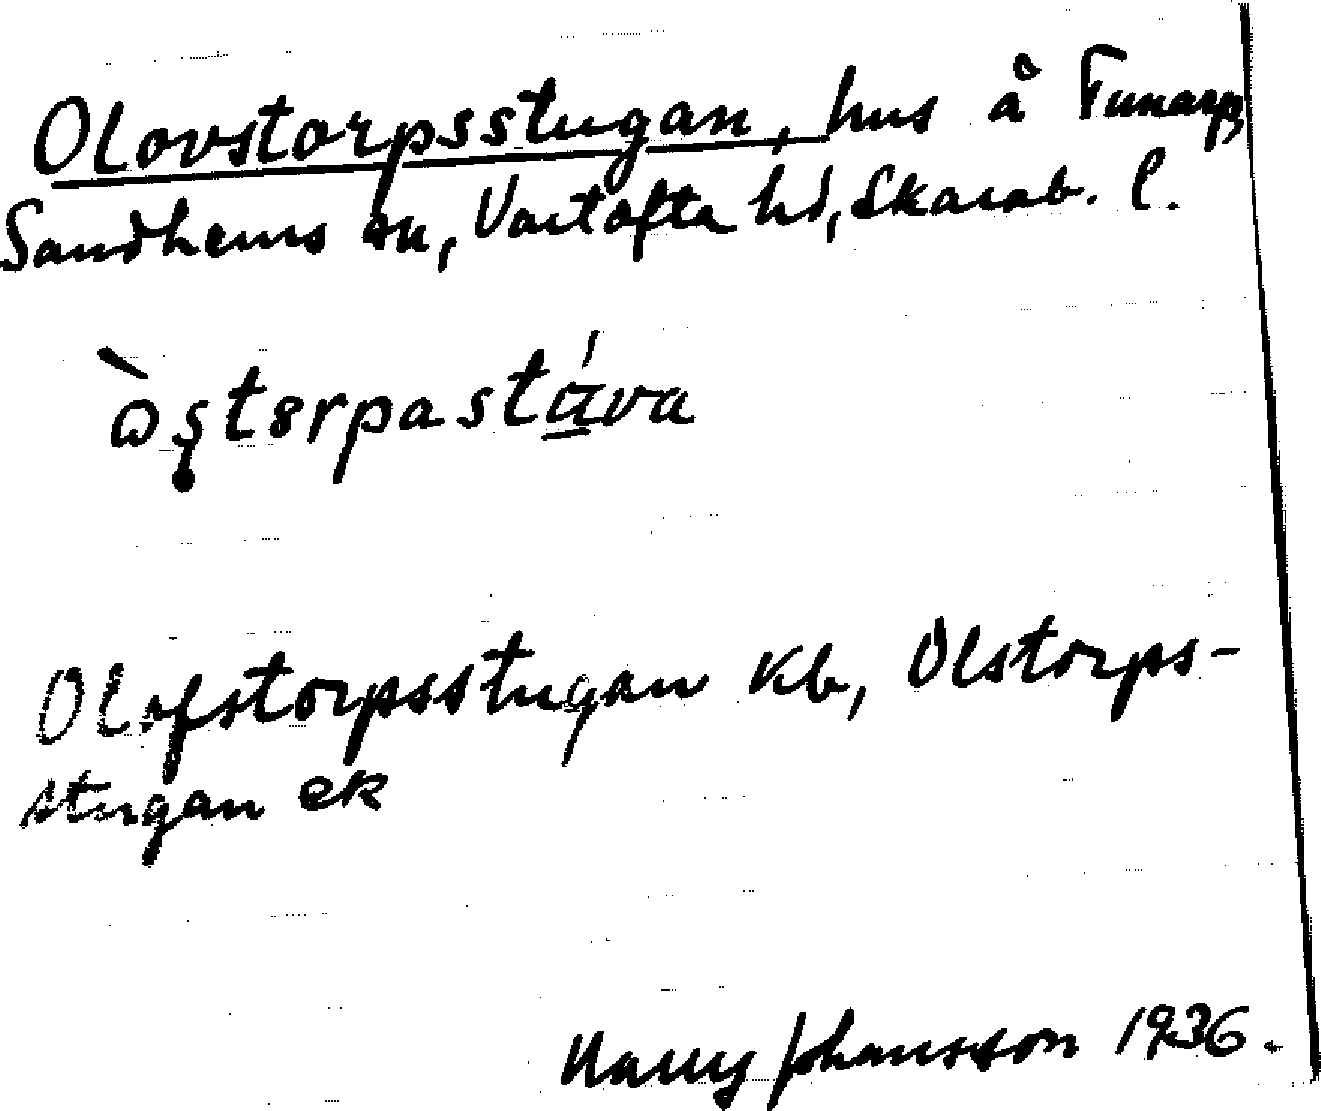 Olovstorpsstugan, hus å Funarp,
Sandhems sn, Vartofta hd, Skarab. l.
Olofstorpsstugan kb, Olstorps-
stugan ek
Harry Johansson 1936.